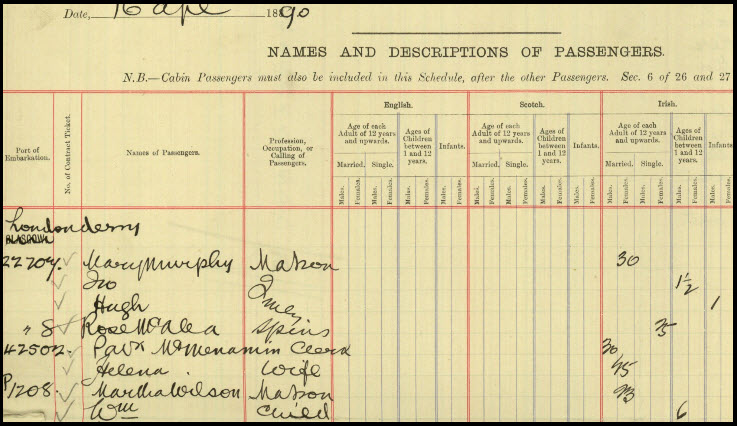 Date, 16 Apl 1890
NAMES AND DESCRIPTIONS OF PASSENGERS.
N.B.—Cabin Passengers must also be included in this Schedule, after the other Passengers. Sec. 6 of 26 and 27
English. Scotch. Irish.
Port of Embarkation. No. of Contract Ticket. Names of Passengers. Profession, Occupation, or Calling of Passengers. Age of each Adult of 12 years and upwards. Ages of Children between 1 and 12 years. Infants. Age of each Adult of 12 years and upwards. Ages of Children between 1 and 12 years. Infants. Age of each Adult of 12 years and upwards. Ages of Children between 1 and 12 years. Infants
Married. Single. Married. Single. Married. Single.
Males. Females. Males. Females. Males. Females. Males. Females. Males. Females. Males. Females. Males. Females. Males. Females. Males. Females. Males. Females. Males. Females. Males. Females.
Londonderry
GLASGOW
22707. Mary Murphy Matron 30
Jno 1½
Hugh 1
" 8 Rose McAlea Spins 25
42502. Patk McMenamin Clerk 30
Helena Wife 25
P/1208. Martha Wilson Matron 23
Wm Child 6